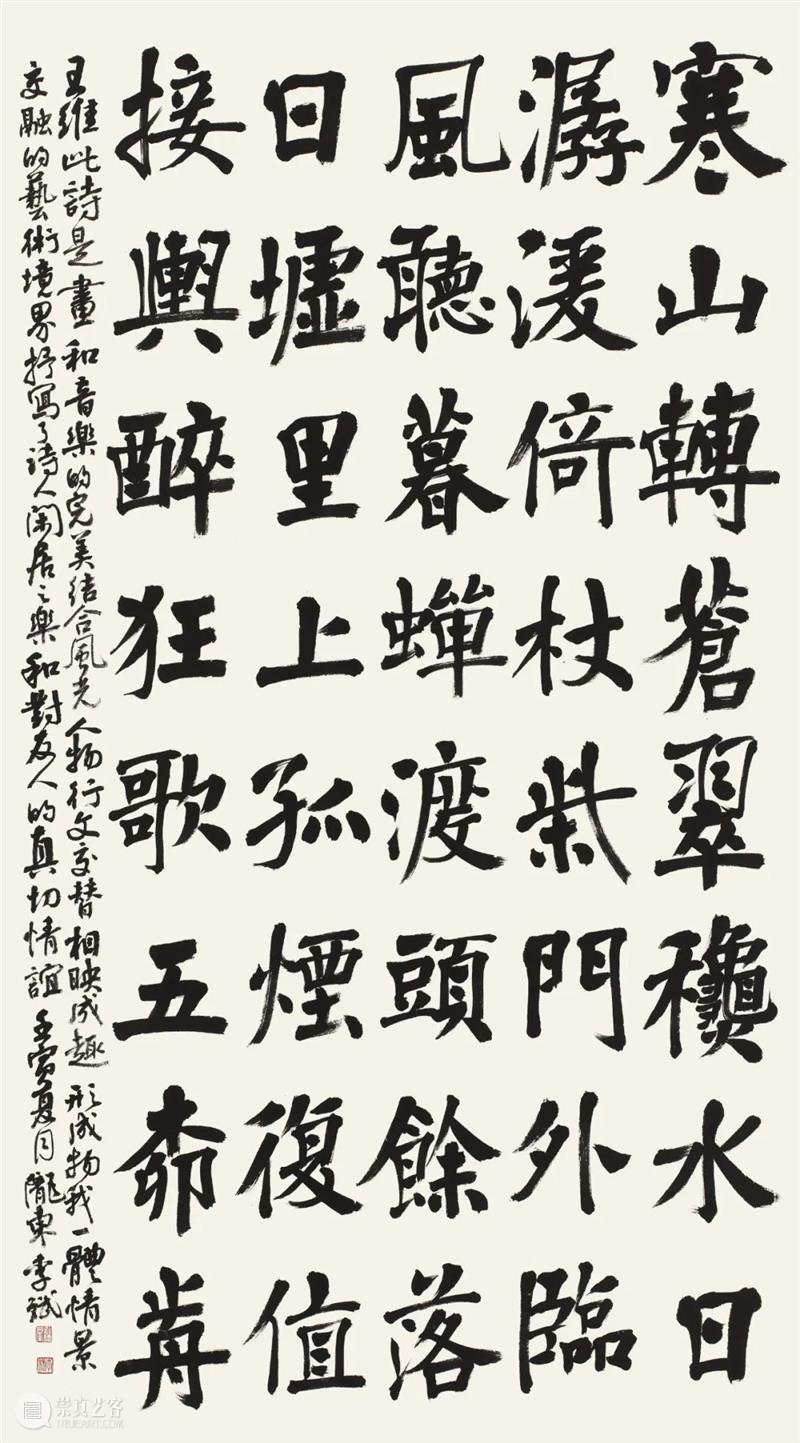 寒山轉蒼翠龝水日
潺湲倚杖柴門外臨
風聽暮蟬渡頭餘落
日墟里上孤煙復值
接輿醉狂歌五桺歬
王維此詩是畫和音樂的完美結合風光人物行文交替相映成趣形成物我一體情景
交融的藝術境界抒寫了詩人閑居之樂和對友人的真切情誼壬寅夏月隴東李斌
崇真艺客